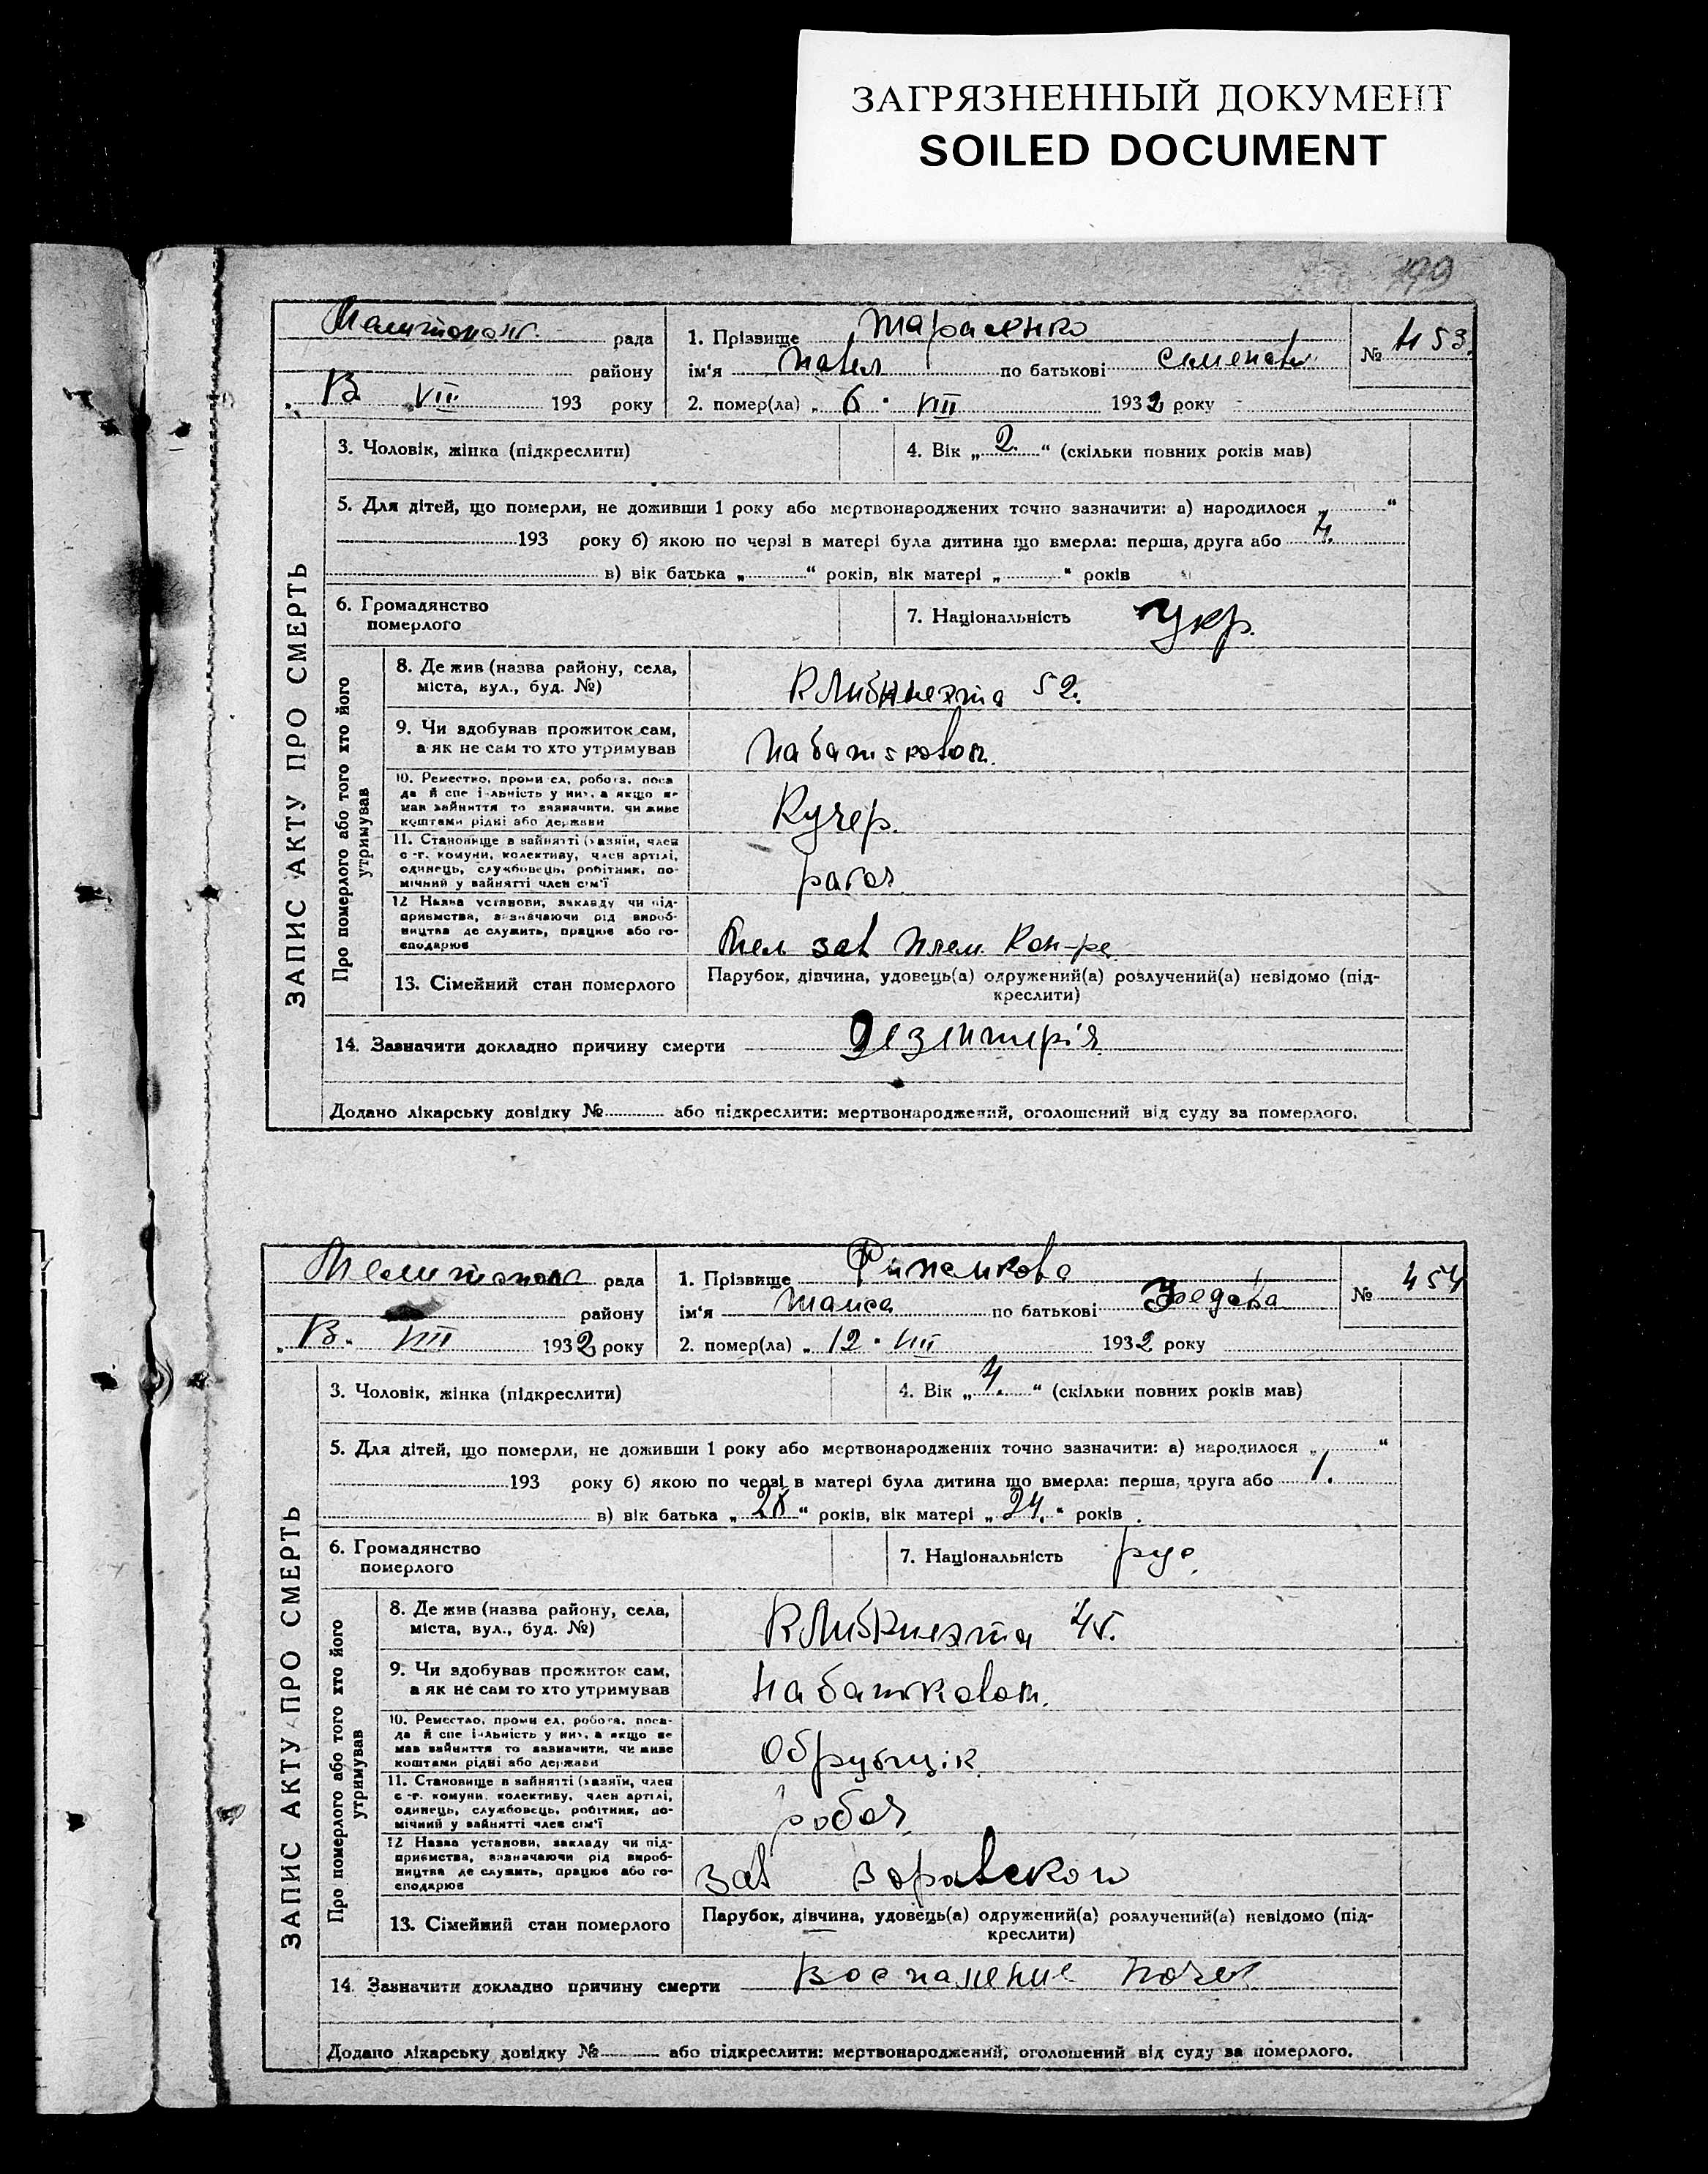 ЗАГРЯЗНЕННЫЙ ДОКУМЕНТ
SOILED DOCUMENT
ЗАПИС АКТУ ПРО СМЕРТЬ
рада
району
„ 13 VIII 193 року
1. Прізвище Тарасенко
ім'я Павел по батькові Семенов
2. помер(ла) „ 6 " VIII 1932 року
№ 453.
3. Чоловік, жінка (підкреслити)
4. Вік „ 2 “ (скільки повних років мав)
5. Для дітей, що померли, не доживши 1 року або мертвонароджених точно зазначити: а) народилося „ “
193 року б) якою по черзі в матері була дитина що вмерла: перша, друга або 4.
в) вік батька „ “ років, вік матері „ “ років
6. Громадянство
померлого
7. Національність Укр.
Про померлого або того хто його
утримував
8. Де жив (назва району, села,
міста, вул., буд. №)
К Либкнехта 52.
9. Чи здобував прожиток сам,
а як не сам то хто утримував
На батьковом.
10. Ремество, промисел, робота, поса-
да й спеціальність у них, а якщо не
мав зайняття то зазначити, чи живе
коштами рідні або держави
Кучер.
11. Становище в зайнятті (хазяїн, член
с.-г. комуни, колективу, член артілі,
одинець, службовець, робітник, по-
мічний у зайнятті член сім'ї
12 Назва установи, закладу чи під-
приємства, зазначаючи рід вироб-
ництва де служить, працює або го-
сподарює
зав Плем. Кон-ра
13. Сімейний стан померлого
Парубок, дівчина, удовець(а) одружений(а) розлучений(а) невідомо (під-
креслити)
14. Зазначити докладно причину смерти Дезентерія
Додано лікарську довідку № або підкреслити: мертвонароджений, оголошений від суду за померлого.
ЗАПИС АКТУ ПРО СМЕРТЬ
рада
району
„ 13. VIII 1932 року
1. Прізвище
ім'я Таиса по батькові
2. помер(ла) „ 12 " VIII 1932 року
№ 454
3. Чоловік, жінка (підкреслити)
4. Вік „ 4. “ (скільки повних років мав)
5. Для дітей, що померли, не доживши 1 року або мертвонароджених точно зазначити: а) народилося „ “
193 року б) якою по черзі в матері була дитина що вмерла: перша, друга або 1.
в) вік батька „ 28 “ років, вік матері „ 24. “ років
6. Громадянство
померлого
7. Національність рус.
Про померлого або того хто його
утримував
8. Де жив (назва району, села,
міста, вул., буд. №)
К Либкнехта 45.
9. Чи здобував прожиток сам,
а як не сам то хто утримував
На батьковом.
10. Ремество, промисел, робота, поса-
да й спеціальність у них, а якщо не
мав зайняття то зазначити, чи живе
коштами рідні або держави
Обрубщік
11. Становище в зайнятті (хазяїн, член
с.-г. комуни, колективу, член артілі,
одинець, службовець, робітник, по-
мічний у зайнятті член сім'ї
робоч
12 Назва установи, закладу чи під-
приємства, зазначаючи рід вироб-
ництва де служить, працює або го-
сподарює
зав Воровского
13. Сімейний стан померлого
Парубок, дівчина, удовець(а) одружений(а) розлучений(а) невідомо (під-
креслити)
14. Зазначити докладно причину смерти Воспаление почек
Додано лікарську довідку № або підкреслити: мертвонароджений, оголошений від суду за померлого.